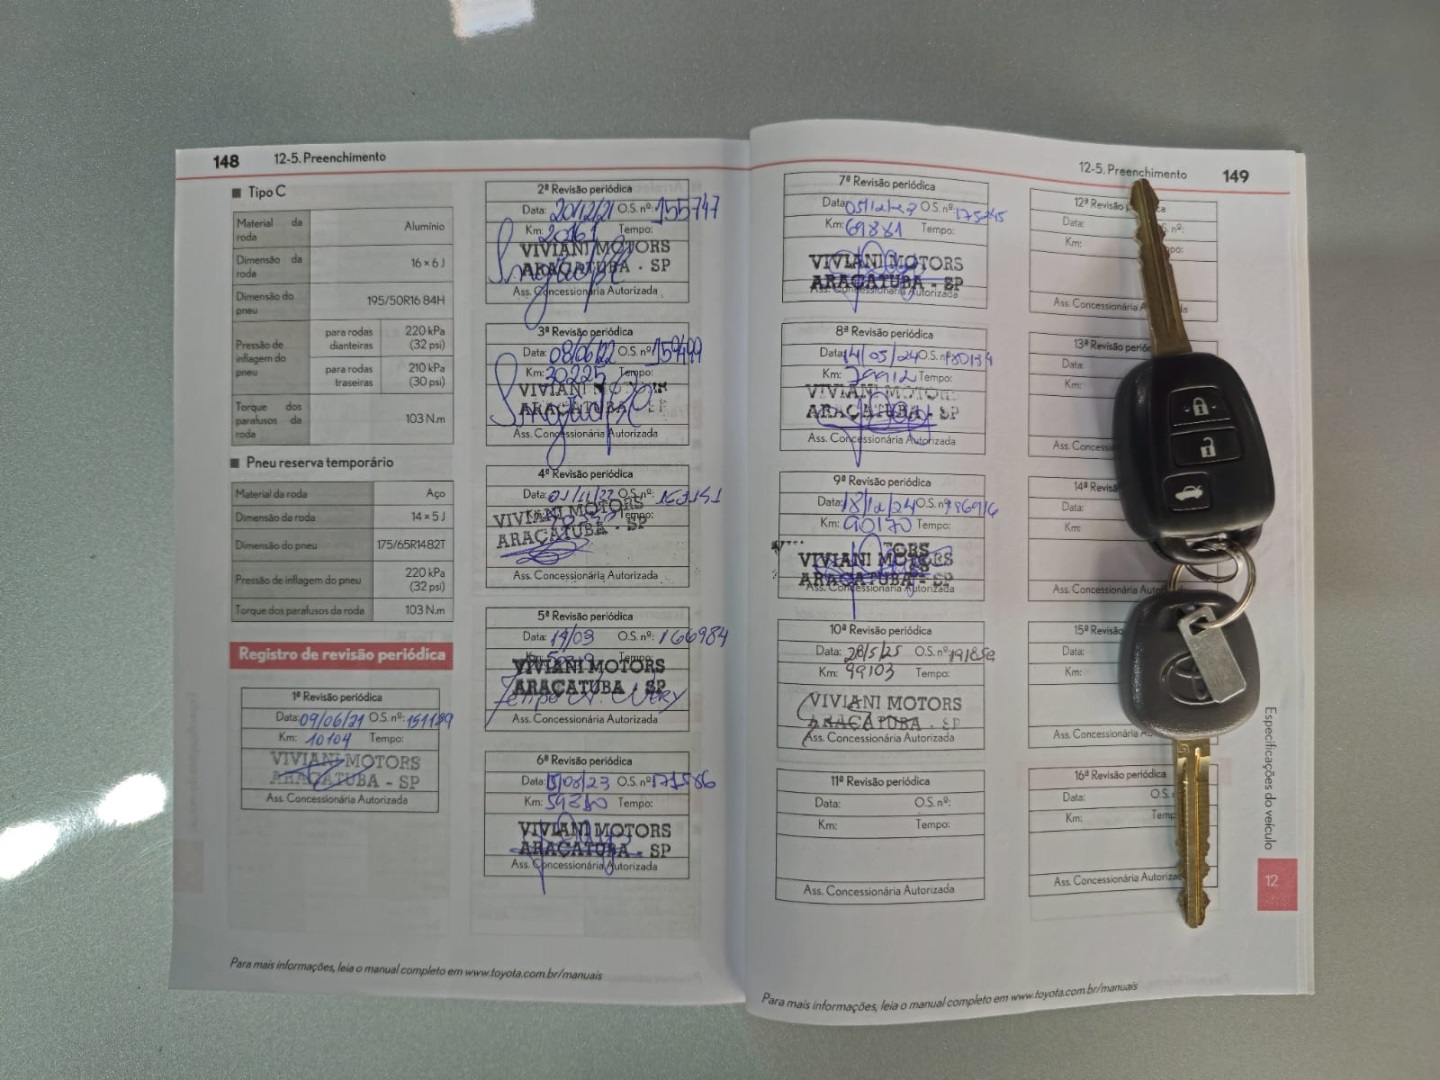 148 12-5. Preenchimento
Tipo C
Material da roda Alumínio
Dimensão da roda 16 × 6 J
Dimensão do pneu 195/50R16 84H
Pressão de inflagem do pneu
para rodas dianteiras 220 kPa (32 psi)
para rodas traseiras 210 kPa (30 psi)
Torque dos parafusos da roda 103 N.m
Pneu reserva temporário
Material da roda Aço
Dimensão da roda 14 × 5 J
Dimensão do pneu 175/65R1482T
Pressão de inflagem do pneu 220 kPa (32 psi)
Torque dos parafusos da roda 103 N.m
Registro de revisão periódica
1ª Revisão periódica
Data: 09/06/21 O.S. nº: 151189
Km: 10104 Tempo:
VIVIANI MOTORS
ARAÇATUBA - SP
Ass. Concessionária Autorizada
2ª Revisão periódica
Data: 20/12/21 O.S. nº: 155747
Km: Tempo:
VIVIANI MOTORS
ARAÇATUBA - SP
Ass. Concessionária Autorizada
3ª Revisão periódica
Data: 08/06/22 O.S. nº:
Km: 30225 Tempo:
VIVIANI MOTORS
ARAÇATUBA - SP
Ass. Concessionária Autorizada
4ª Revisão periódica
Data: 01/11/22 O.S. nº:
Tempo:
VIVIANI MOTORS
ARAÇATUBA - SP
Ass. Concessionária Autorizada
5ª Revisão periódica
Data: 14/03 O.S. nº: 166984
VIVIANI MOTORS
ARAÇATUBA - SP
Ass. Concessionária Autorizada
6ª Revisão periódica
Data: O.S. nº:
Km: Tempo:
VIVIANI MOTORS
ARAÇATUBA - SP
Ass. Concessionária Autorizada
Para mais informações, leia o manual completo em www.toyota.com.br/manuais
12-5. Preenchimento 149
7ª Revisão periódica
Data: O.S. nº:
Km: 69881 Tempo:
VIVIANI MOTORS
ARAÇATUBA - SP
Ass. Concessionária Autorizada
8ª Revisão periódica
Data: 14/05/24 O.S. nº
Km: 79912 Tempo:
VIVIANI MOTORS
ARAÇATUBA - SP
Ass. Concessionária Autorizada
9ª Revisão periódica
Data: O.S. nº
Km: 90170 Tempo:
VIVIANI MOTORS
ARAÇATUBA - SP
Ass. Concessionária Autorizada
10ª Revisão periódica
Data: 28/5/25 O.S. nº
Km: 99103 Tempo:
VIVIANI MOTORS
ARAÇATUBA - SP
Ass. Concessionária Autorizada
11ª Revisão periódica
Data: O.S. nº:
Km: Tempo:
Ass. Concessionária Autorizada
12ª Revisão
Data:
Km:
Ass. Concessionária
13ª
Data:
Km:
Ass.
14ª
Data:
Km:
Ass. Concessionária
15ª
Data:
Km:
Ass. Concessionária
16ª Revisão periódica
Data: O.S.
Km:
Ass. Concessionária
Especificações do veículo
12
Para mais informações, leia o manual completo em www.toyota.com.br/manuais